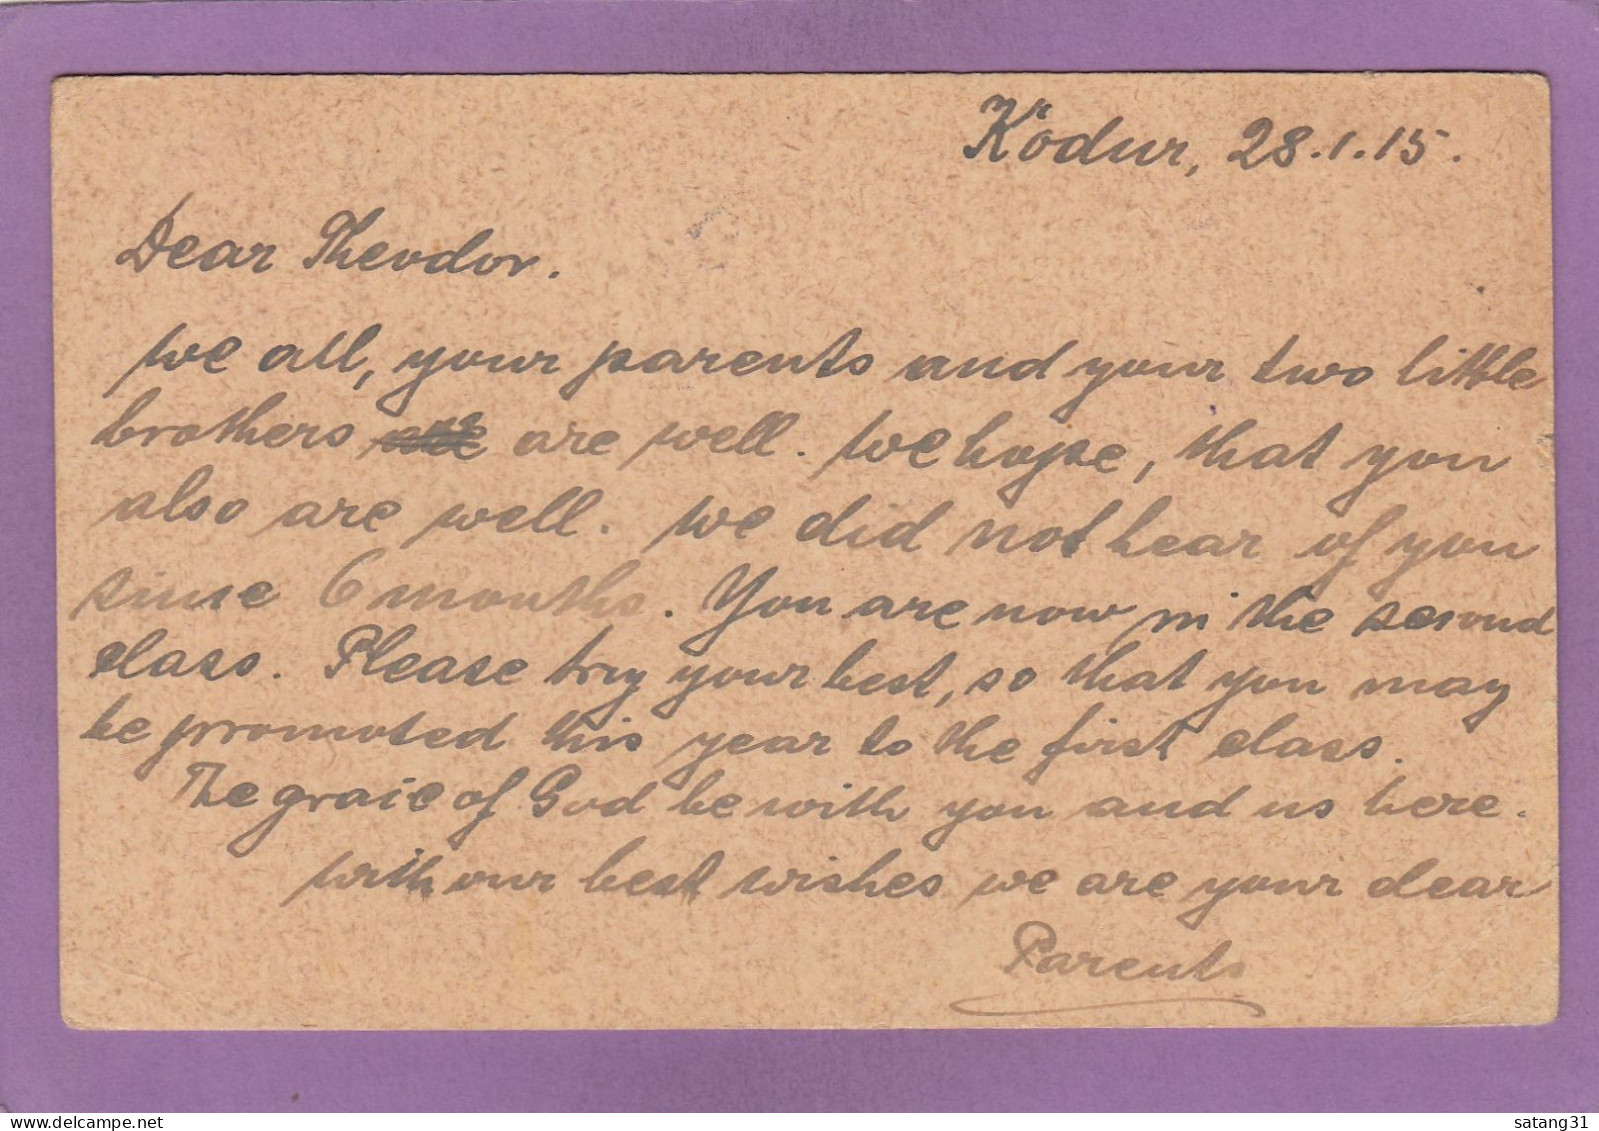 Kodur, 28.1.15.
Dear Theodor.
We all, your parents and your two little
brothers are well. We hope, that you
also are well. We did not hear of you
since 6 months. You are now in the second
class. Please try your best, so that you may
be promoted this year to the first class.
The graice of God be with you and us here.
With our best wishes we are your dear
Parents
satang31